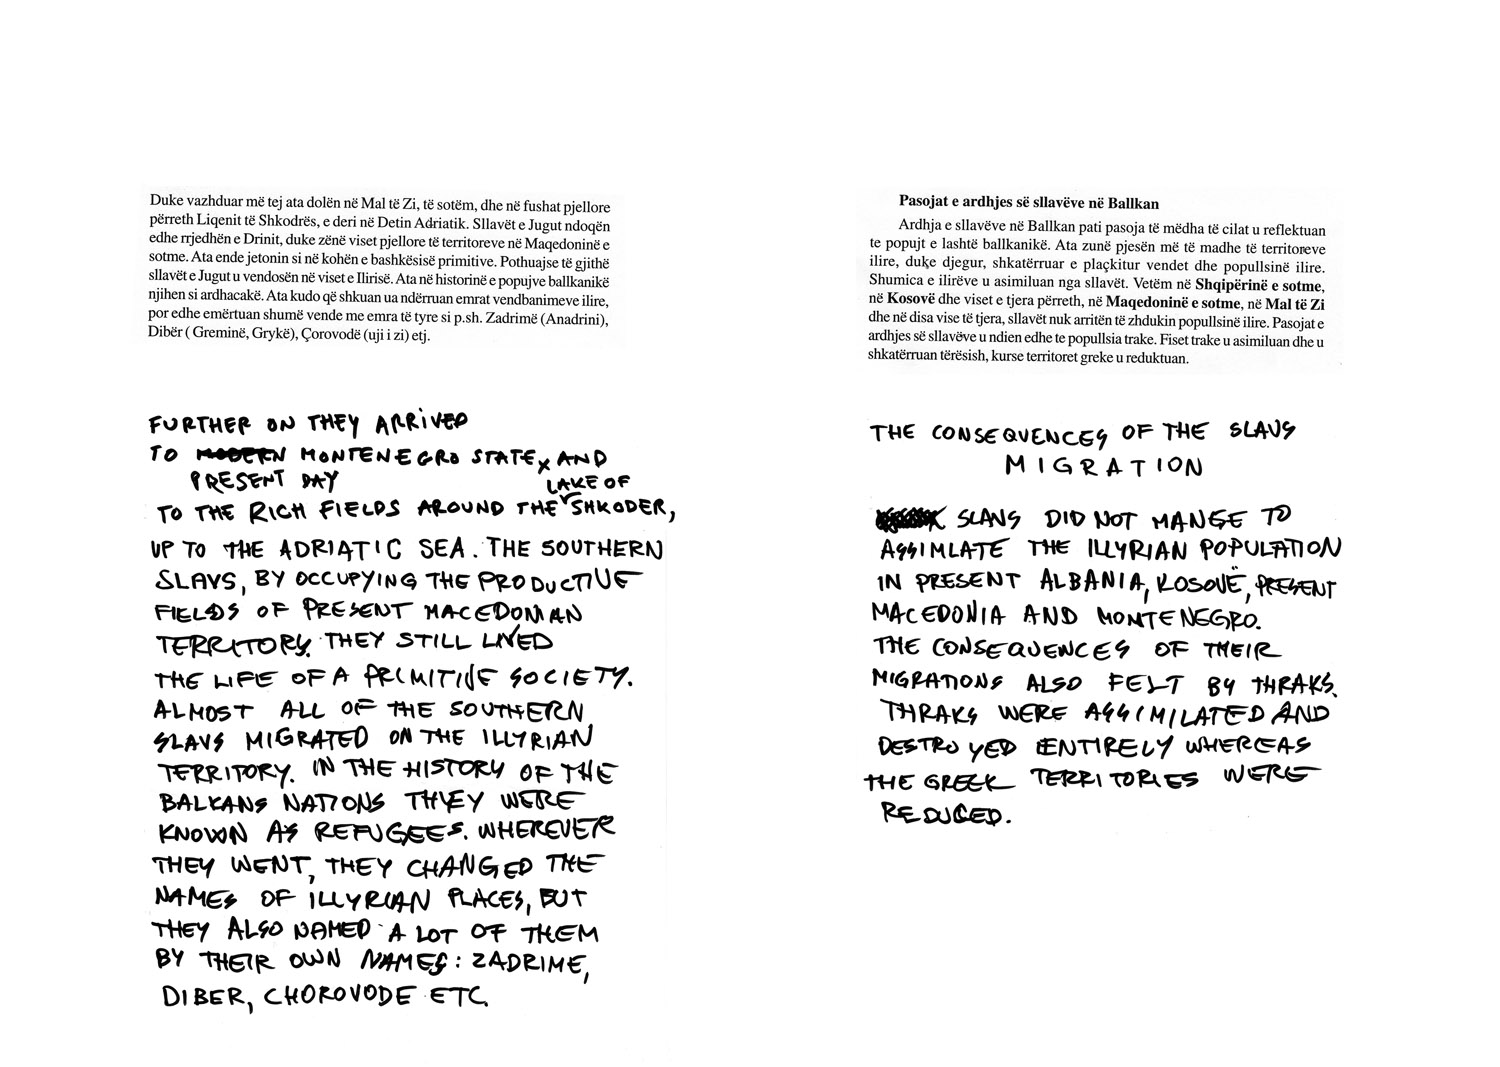 Duke vazhduar më tej ata dolën në Mal të Zi, të sotëm, dhe në fushat pjellore
përreth Liqenit të Shkodrës, e deri në Detin Adriatik. Sllavët e Jugut ndoqën
edhe rrjedhën e Drinit, duke zënë viset pjellore të territoreve në Maqedoninë e
sotme. Ata ende jetonin si në kohën e bashkësisë primitive. Pothuajse të gjithë
sllavët e Jugut u vendosën në viset e Ilirisë. Ata në historinë e popujve ballkanikë
njihen si ardhacakë. Ata kudo që shkuan ua ndërruan emrat vendbanimeve ilire,
por edhe emërtuan shumë vende me emra të tyre si p.sh. Zadrimë (Anadrini),
Dibër ( Greminë, Grykë), Çorovodë (uji i zi) etj.
FURTHER ON THEY ARRIVED
TO MODERN MONTENEGRO STATE, AND
PRESENT DAY LAKE OF
TO THE RICH FIELDS AROUND THE SHKODER,
UP TO THE ADRIATIC SEA. THE SOUTHERN
SLAVS, BY OCCUPYING THE PRODUCTIVE
FIELDS OF PRESENT MACEDONIAN
TERRITORY. THEY STILL LIVED
THE LIFE OF A PRIMITIVE SOCIETY.
ALMOST ALL OF THE SOUTHERN
SLAVS MIGRATED ON THE ILLYRIAN
TERRITORY. IN THE HISTORY OF THE
BALKANS NATIONS THEY WERE
KNOWN AS REFUGEES. WHEREVER
THEY WENT, THEY CHANGED THE
NAMES OF ILLYRIAN PLACES, BUT
THEY ALSO NAMED A LOT OF THEM
BY THEIR OWN NAMES: ZADRIME,
DIBER, CHOROVODE ETC.
Pasojat e ardhjes së sllavëve në Ballkan
Ardhja e sllavëve në Ballkan pati pasoja të mëdha të cilat u reflektuan
te popujt e lashtë ballkanikë. Ata zunë pjesën më të madhe të territoreve
ilire, duke djegur, shkatërruar e plaçkitur vendet dhe popullsinë ilire.
Shumica e ilirëve u asimiluan nga sllavët. Vetëm në Shqipërinë e sotme,
në Kosovë dhe viset e tjera përreth, në Maqedoninë e sotme, në Mal të Zi
dhe në disa vise të tjera, sllavët nuk arritën të zhdukin popullsinë ilire. Pasojat e
ardhjes së sllavëve u ndien edhe te popullsia trake. Fiset trake u asimiluan dhe u
shkatërruan tërësish, kurse territoret greke u reduktuan.
THE CONSEQUENCES OF THE SLAVS
MIGRATION
SLAVS DID NOT MANGE TO
ASSIMLATE THE ILLYRIAN POPULATION
IN PRESENT ALBANIA, KOSOVË, PRESENT
MACEDONIA AND MONTENEGRO.
THE CONSEQUENCES OF THEIR
MIGRATIONS ALSO FELT BY THRAKS.
THRAKS WERE ASSIMILATED AND
DESTROYED ENTIRELY WHEREAS
THE GREEK TERRITORIES WERE
REDUCED.